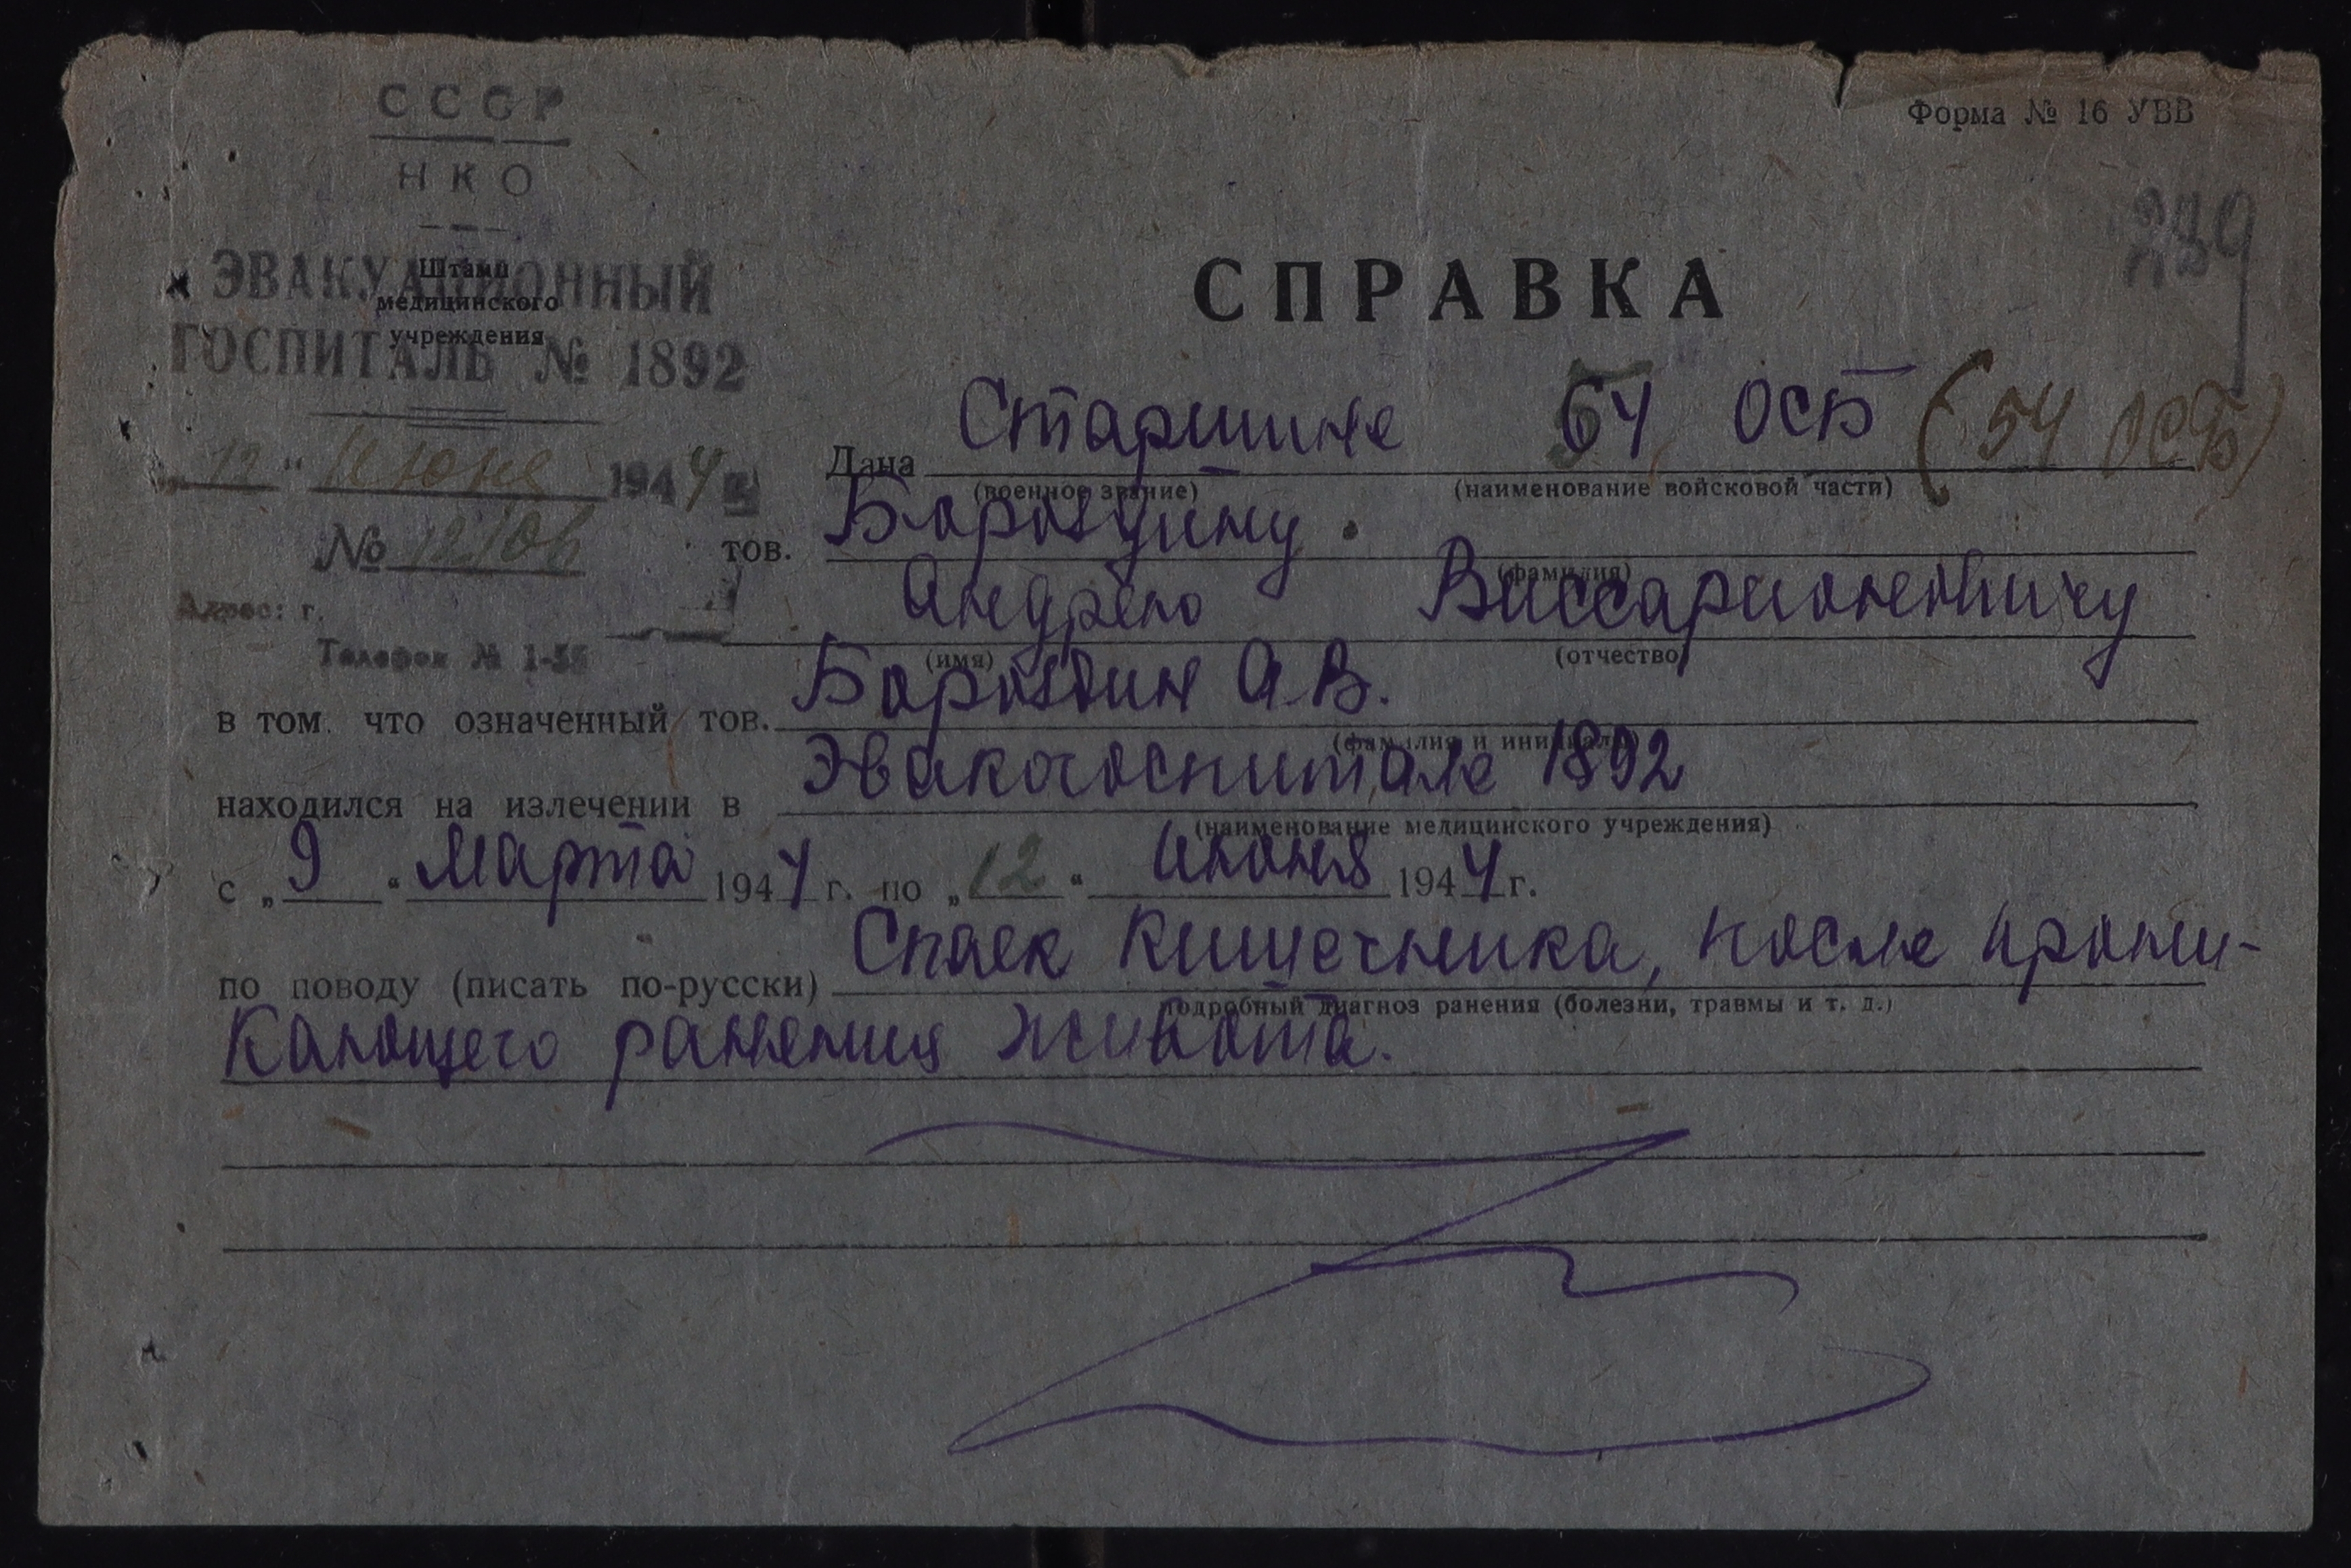 СССР
Форма № 16 УВВ
НКО
239
ЭВАКУАЦИОННЫЙ
Штамп
медицинского
учреждения
ГОСПИТАЛЬ № 1892
СПРАВКА
„12“ Июня 1944 г.
Дана Старшине 54 ОСБ (54 ОСБ)
(военное звание) (наименование войсковой части)
№ 12/06
тов. Бороздину.
(фамилия)
Адрес: г.
Андрею Виссарионовичу
Телефон № 1-
(имя) (отчество)
в том, что означенный тов. Бороздин А.В.
(фамилия и инициалы)
находился на излечении в Эвакогоспитале 1892
(наименование медицинского учреждения)
с „9“ Марта 1944 г. по „12“ июня 1944 г.
по поводу (писать по-русски) Спаек Кишечника, после прони-
подробный диагноз ранения (болезни, травмы и т. д.)
кающего ранения живота.